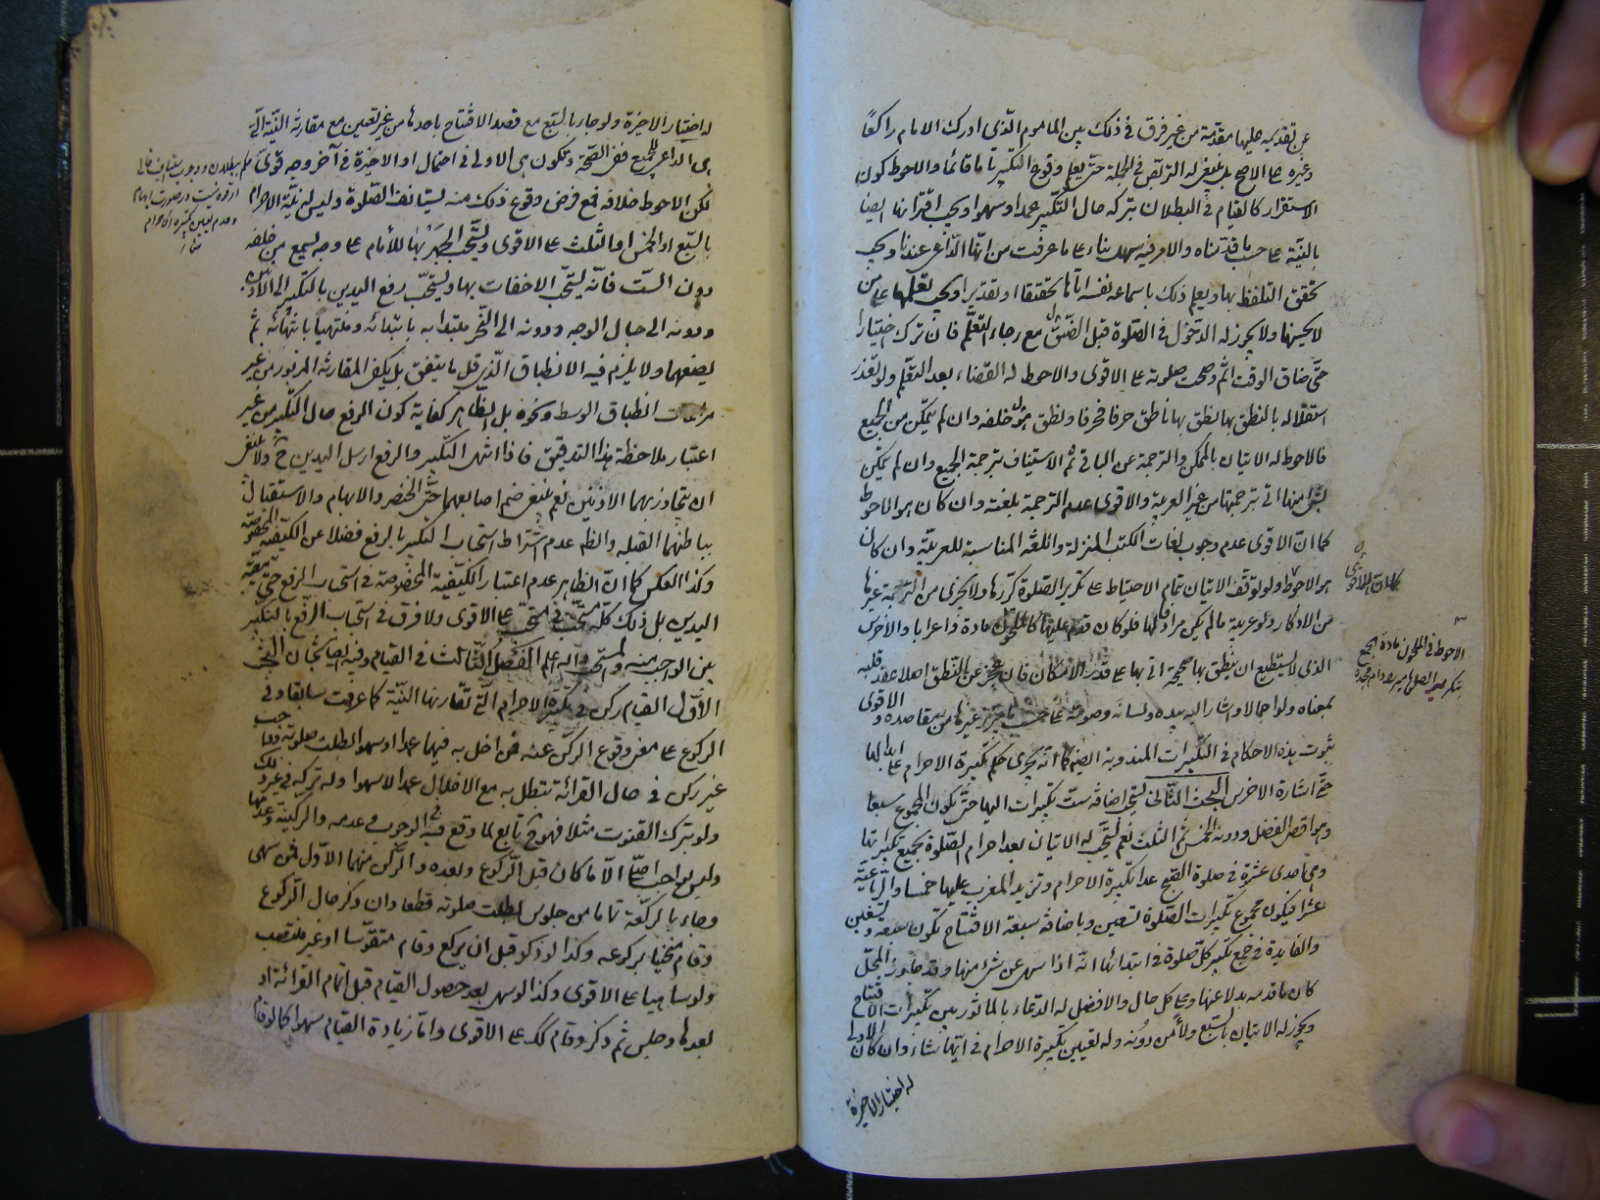 عن تقديمه عليها مقدمة من غير فرق في ذلك بين المأموم الذي ادرك الامام راكعاً
وغيره على الاصح بل ينبغي له التربص في الجملة حتى يعلم وقوع التكبير تاما قائما والاحوط كون
الاستقرار كالقيام في البطلان بتركه حال التكبير عمدا وسهوا ويجب اقترانها ايضا
بالنية على حسب ما قدمناه والامر فيه سهل بناء على ما عرفت من انها الداعي عندنا ويجب
تحقق التلفظ بها ويعلم ذلك باسماعه نفسه اياها تحقيقا او تقديرا ويجب تعلمها على من
لا يحسنها ولا يجوز له الدخول في الصلوة قبل الضيق مع رجاء التعلم فان ترك اختيارا
حتى ضاق الوقت اثم وصحت صلوته على الاقوى والاحوط له القضاء بعد التعلم ولو تعذر
استقلاله بالنطق بها نطق بها ناطق حرفا فحرفا ونطق هو خلفه وان لم يتمكن من الجميع
فالاحوط له الاتيان بالممكن والترجمة عن الباقي ثم الاستيناف بترجمة الجميع وان لم يتمكن
بشئ منها اتى بترجمتها من غير العربية والاقوى عدم الترجمة بلغته وان كان هو الاحوط
كما ان الاقوى عدم وجوب لغات الكتب المنزلة واللغة المناسبة للعربية وان كان
هو الاحوط ولو توقف الاتيان بتمام الاحتياط على تكرير الصلوة كررها ولا يجزي من الترجمة غيرها
من الاذكار ولو عربية ما لم يكن مرادفا لها فلو كان قدم عليها كالملحون مادة واعرابا والاخرس
الذي لا يستطيع ان ينطق بها صحيحة اتى بها على قدر الامكان فان عجز عن النطق اصلا عقد قلبه
بمعناه ولو اجمالا واشار اليه بيده ولسانه وصوته على حسب ما يبرز غيرها من مقاصده والاقوى
ثبوت هذه الاحكام في التكبيرات المندوبة ايضا كما انه يجري حكم تكبيرة الاحرام على ابدالها
حتى اشارة الاخرس البحث الثاني يستحب اضافة ست تكبيرات اليها حتى يكون المجموع سبعا
وهو اقصى الفضل ودونه الخمس ثم الثلث نعم يستحب له الاتيان بعد احرام الصلوة بجميع تكبيراتها
وهي احدى عشرة في صلوة الصبح عدا تكبيرة الاحرام وتزيد المغرب عليها خمسا والرباعية
عشرا فيكون مجموع تكبيرات الصلوة تسعين وباضافة سبعة الافتتاح تكون سبعة وتسعين
والفايدة في جمع تكبير كل صلوة في ابتدائها انه اذا سهى عن شئ منها وقد جاوز المحل
كان ما قدمه بدلا عنها وعلى كل حال والافضل له الدعاء بالماثور بين تكبيرات الافتتاح
ويجوز له الاتيان بالسبع ولاء من دونه وله تعيين تكبيرة الاحرام في ايتها شاء وان كان الاولى
له اختيار الاخيرة
الاحوط في الملحون مادة الجمع
له اختيار الاخيرة ولو جاء بالسبع مع قصد الافتتاح باحدها من غير تعيين مع مقارنة النية التي
هي الداعي للجميع ففي الصحة وتكون هي الاولى في احتمال او الاخيرة في آخر وجه قوي
لكن الاحوط خلافه فمع فرض وقوع ذلك منه يستانف الصلوة وليس له نية الاحرام
بالسبع او الخمس او الثلث على الاقوى ويستحب الجهر بها للامام على وجه يسمع من خلفه
دون الست فانه يستحب الاخفات بها ويستحب رفع اليدين بالتكبير الى الاذنين
ودونه الى حيال الوجه ودونه الى النحر مبتدا به بابتدائه ومنتهيا بانتهائه ثم
يضعهما ولا يلزم فيه الانطباق الذي قل ما يتفق بل يكفي المقارنة المزبورة من غير
مراعات انطباق الوسط ونحوه بل الظاهر كفاية كون الرفع حال التكبير من غير
اعتبار ملاحظة هذا التدقيق فاذا انتهى التكبير والرفع ارسل اليدين ح ولا ينبغي
ان يتجاوز بهما الاذنين نعم ينبغي ضم اصابعهما حتى الخنصر والابهام والاستقبال
بباطنهما القبلة والظ عدم اشتراط استحباب التكبير بالرفع فضلا عن الكيفية المخصوصة
وكذا العكس كما ان الظاهر عدم اعتبار الكيفية المخصوصة في استحباب الرفع حتى معية
اليدين بل ذلك كله مستحب في مستحب على الاقوى ولا فرق في استحباب الرفع بالتكبير
بين الواجب منه والمستحب والله اعلم الفصل الثالث في القيام وفيه ايضا بحثان البحث
الاول القيام ركن في تكبيرة الاحرام التي تقارنها النية كما عرفت سابقا وفي
الركوع على معنى وقوع الركن عنه فمن اخل به فيهما عمدا وسهوا بطلت صلوته وواجب
غير ركن في حال القرائة تبطل به مع الاخلال عمدا لا سهوا وله تركه في غير ذلك
ولو بترك القنوت مثلا فهو ح تابع لما وقع فيه في الوجوب وعدمه والركنية وعدمها
وليس بواجب اصلا الا ما كان قبل الركوع وبعده والركن منهما الاول فمن سهى
وجاء بالركعة تاما من جلوس بطلت صلوته قطعا وان ذكر حال الركوع
وقام منحنيا بركوعه وكذا لو ذكر قبل ان يركع وقام متقوسا او غير منتصب
ولو ساهيا على الاقوى وكذا لو سهى بعد حصول القيام قبل اتمام القرائة او
بعدها وجلس ثم ذكر وقام كك على الاقوى واما زيادة القيام سهوا كما لو قام